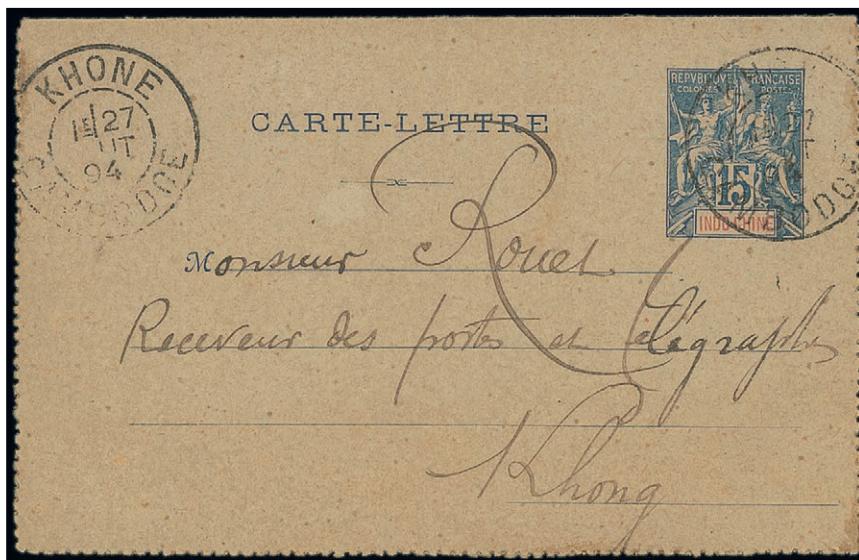 KHONE
1E 27
UT
94
CAMBODGE
CARTE-LETTRE
REPVBLIQUE FRANÇAISE
COLONIES POSTES
15
INDO-CHINE
Monsieur Rouet
Receveur des postes et télégraphes
Khong